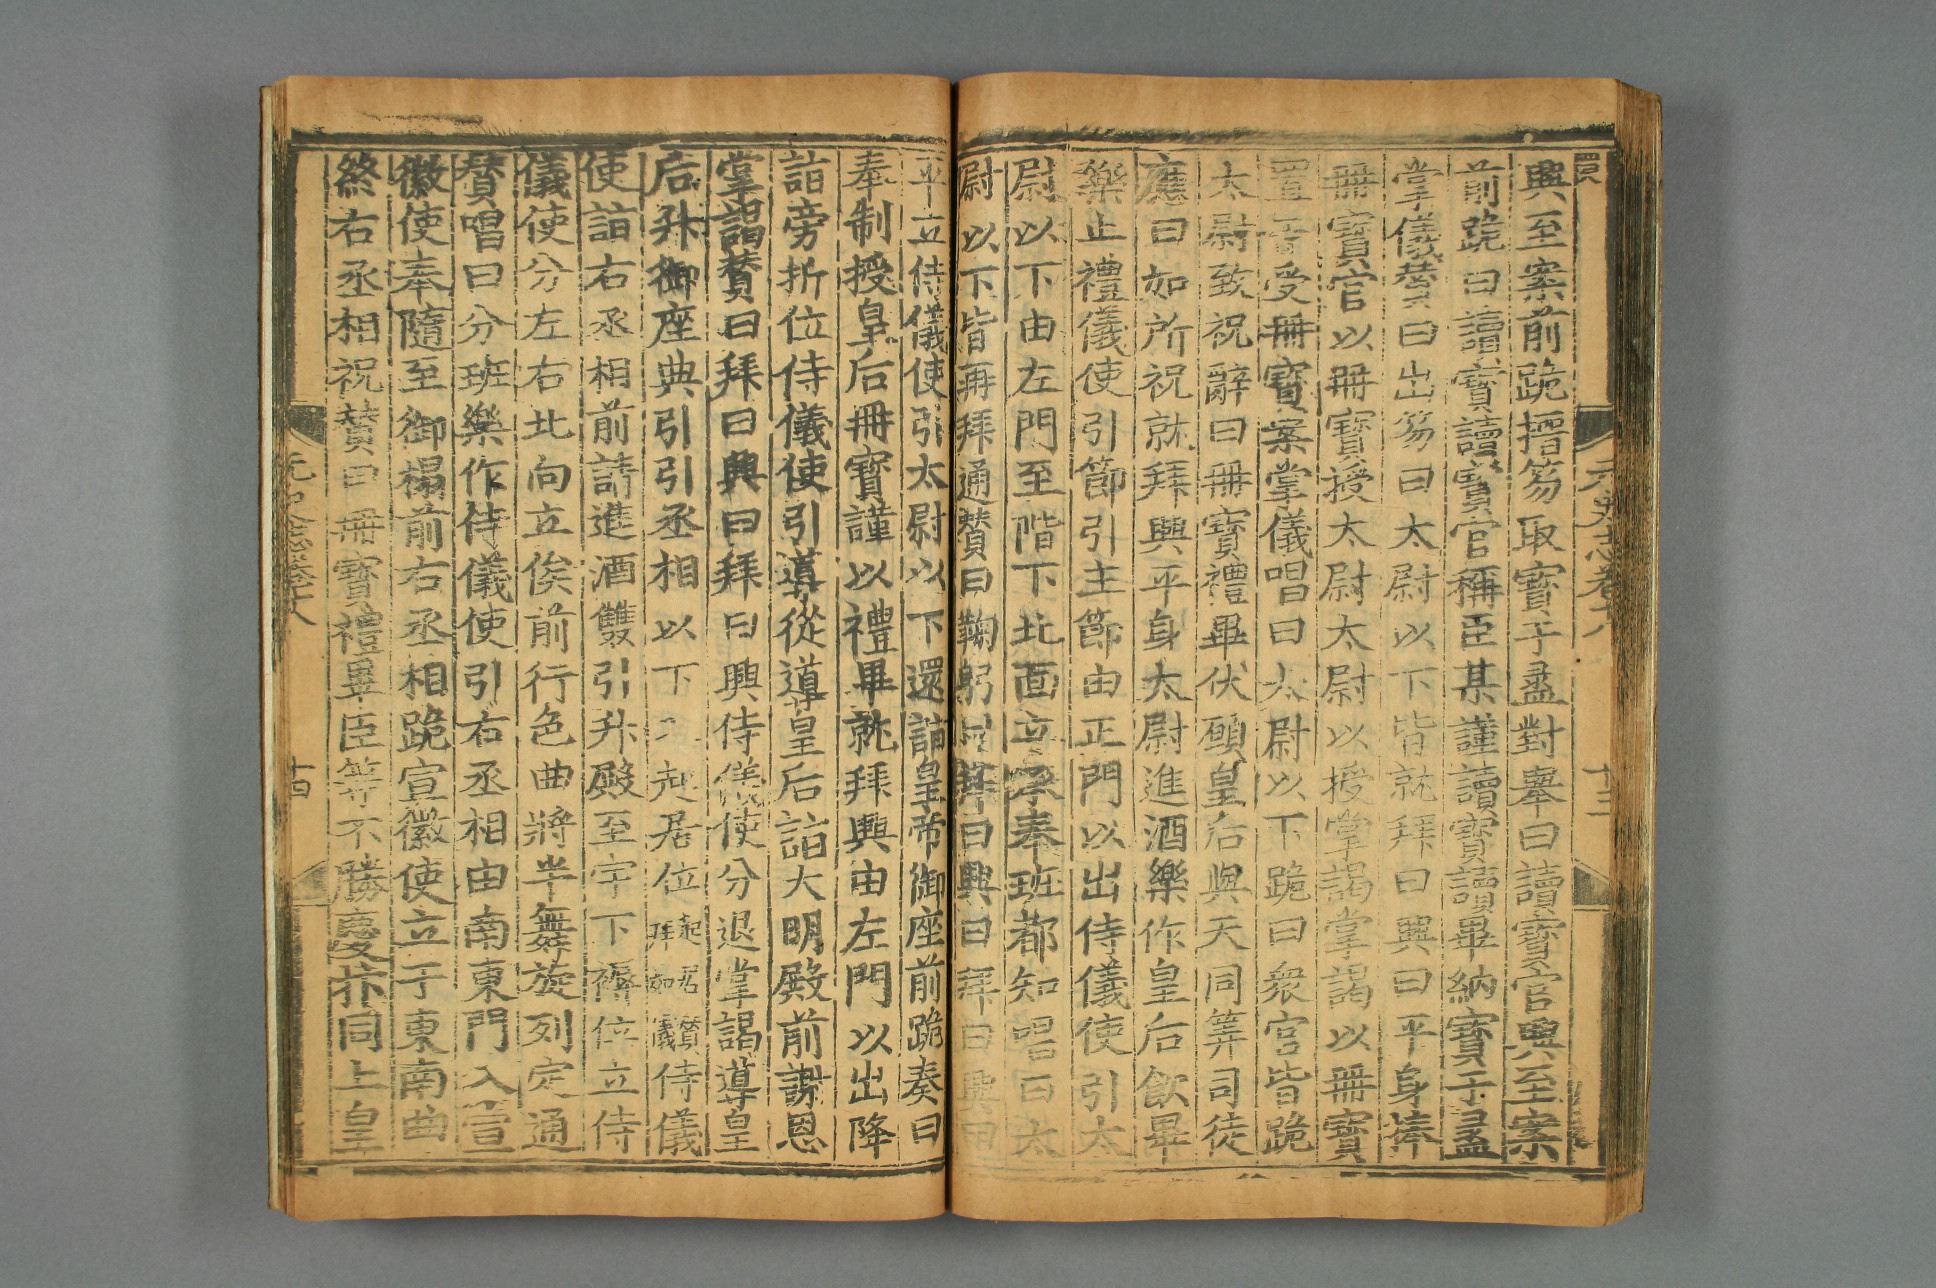 興至案前跪搢笏取寶于盝對舉曰讀寶官興至案
前跪曰讀寶讀寶官稱臣某謹讀寶讀畢納寶于盝
掌儀贊曰出笏曰太尉以下皆就拜曰興曰平身捧
冊寶官以冊寶授太尉太尉以授掌謁掌謁以冊寶
置受冊寶案掌儀唱曰太尉以下跪曰衆官皆跪
太尉致祝辭曰冊寶禮畢伏願皇后與天同筭司徒
應曰如所祝就拜興平身太尉進酒樂作皇后飲畢
樂止禮儀使引節引主節由正門以出侍儀使引太
尉以下由左門至階下北面立承奉班都知唱曰太
尉以下皆再拜通贊曰鞠躬曰拜曰興曰拜曰興曰
平立侍儀使引太尉以下還詣皇帝御座前跪奏曰
奉制授皇后冊寶謹以禮畢就拜興由左門以出降
詣旁折位侍儀使引導從導皇后詣大明殿前謝恩
掌謁贊曰拜曰興曰拜曰興侍儀使分退掌謁導皇
后升御座典引引丞相以下入起居位起居贊拜如儀侍儀
使詣右丞相前請進酒雙引升殿至宇下褥位立侍
儀使分左右北向立俟前行色曲將半舞旋列定通
贊唱曰分班樂作侍儀使引右丞相由南東門入宣
徽使奉隨至御榻前右丞相跪宣徽使立于東南曲
終右丞相祝贊曰冊寶禮畢臣等不勝慶抃同上皇
元史志卷十八
十三
元史志卷十八
十四